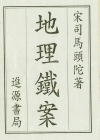 宋司馬頭陀著
地理鐵案
進源書局